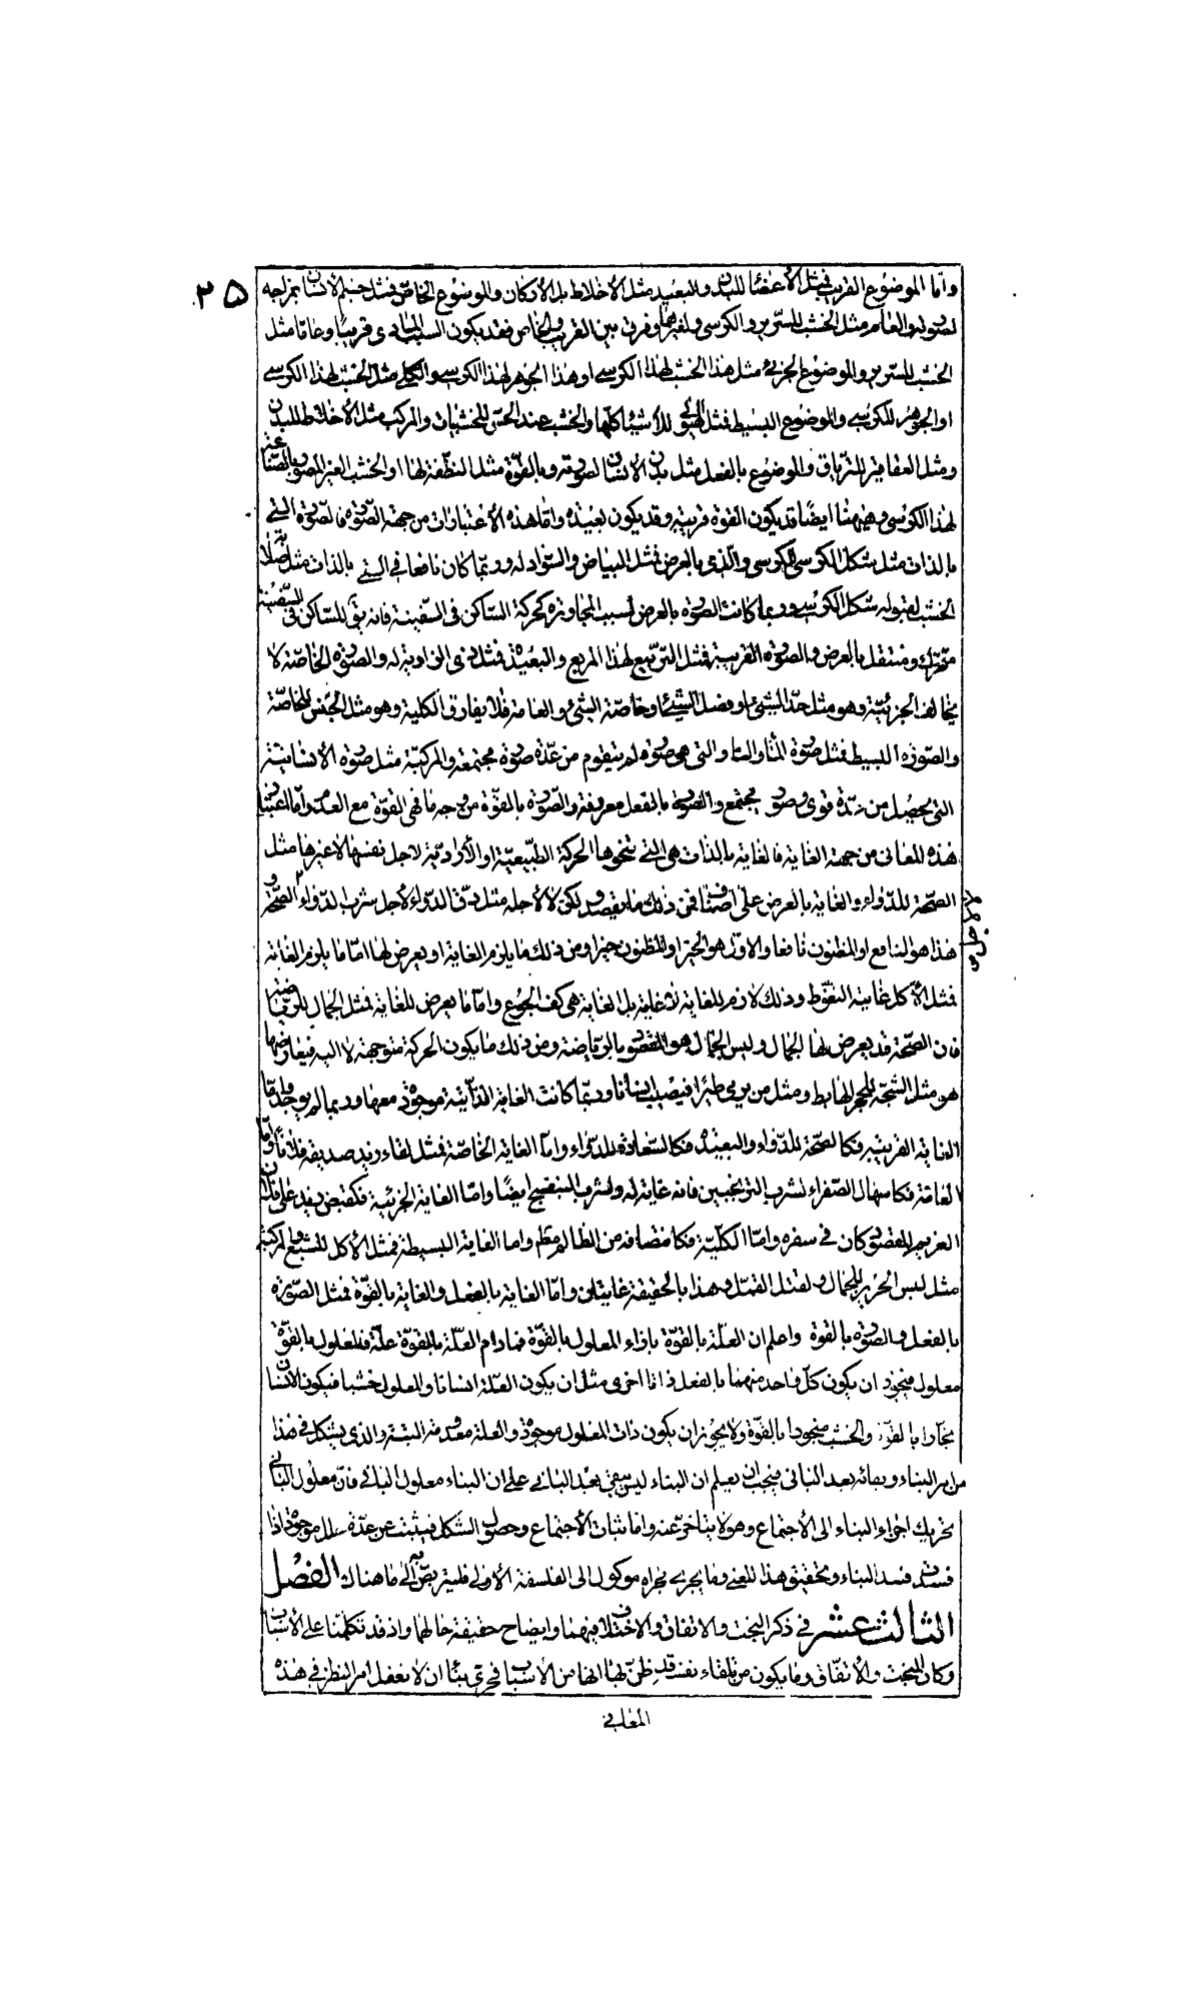 ٢٥
واما الموضوع القريب فمثل الأعضاء للبدن والبعيد مثل الأخلاط بل الأركان والموضوع الخاص فمثل جسم الانسان بمزاجه
لصورته والعام مثل الخشب للسرير والكرسي ولغيرهما وفرق بين القريب والخاص فقد يكون السبب المادي قريبا وعاما مثل
الخشب للسرير والموضوع الجزئي مثل هذا الخشب لهذا الكرسي او هذا الجوهر لهذا الكرسي والكلي مثل الخشب لهذا الكرسي
او الجوهر للكرسي والموضوع البسيط فمثل الهيولى للأشياء كلها والخشب عند الحس للخشبيات والمركب مثل الأخلاط للبدن
ومثل العقاقير للترياق والموضوع بالفعل مثل بدن الانسان لصورته وبالقوة مثل النطفة لها او الخشب الغير المصور بالصناعة
لهذا الكرسي وههنا ايضا قد يكون القوة قريبة وقد يكون بعيدة واما هذه الأعتبارات من جهة الصورة فالصورة التي
بالذات مثل شكل الكرسي للكرسي والذي بالعرض فمثل البياض والسواد له وربما كان نافعا في الذي بالذات مثل صلابة
الخشب لقبوله شكل الكرسي وربما كانت الصورة بالعرض لسبب المجاورة كحركة الساكن في السفينة فانه يق للساكن في السفينة
متحرك ومنتقل بالعرض والصورة القريبة فمثل التربيع لهذا المربع والبعيدة فمثل ذي الزاوية له والصورة الخاصة لا
يخالف الجزئية وهو مثل حد الشيء او فصل الشيء او خاصة الشيء والعامة فلا يفارق الكلية وهو مثل الجنس للخاصة
والصورة البسيطة فمثل صورة الماء والنار التي هي صورة لم يتقوم من عدة صورة مجتمعة والمركبة مثل صورة الانسانية
التي يحصل من عدة قوى وصور مجتمع والصورة بالفعل معروفة والصورة بالقوة من وجه ما فهي القوة مع العدم واما اعتبار
هذه المعاني من جهة الغاية فالغاية بالذات هي التي تنحوها الحركة الطبيعية او الأرادية لاجل نفسها لا غيرها مثل
الصحة للدواء والغاية بالعرض على اصناف فمن ذلك ما يقصد ولكن لا لأجله مثل دق الدواء لأجل شرب الدواء لاجل الصحة و
هذا هو النافع او المظنون نافعا والاول هو الخير او المظنون خيرا ومن ذلك ما يلزم الغاية او يعرض لها اما ما يلزم الغاية
فمثل الأكل غايته التغوط وذلك لازم للغاية لا غاية بل الغاية هي كف الجوع واما ما يعرض للغاية فمثل الجمال للرياضة
فان الصحة قد يعرض لها الجمال وليس الجمال هو المقصود بالرياضة ومن ذلك ما يكون الحركة متوجهة لا اليه فيعارضها
هو مثل الشجة للحجر الهابط ومثل من يرمي طيرا فيصيب انسانا وربما كانت الغاية الذاتية موجودة معها وربما لم يوجد واما
الغاية القريبة فكالصحة للدواء والبعيدة فكالسعادة للدواء واما الغاية الخاصة فمثل لقاء زيد صديقه فلانا واما
العامة فكاسهال الصفراء لشرب الترنجبين فانه غاية له ولشرب البنفسج ايضا واما الغاية الجزئية فكقبض زيد على فلان
الغريم المقصود كان في سفره واما الكلية فكانتصافه من الظالم مطلقا واما الغاية البسيطة فمثل الأكل للشبع والمركبة
مثل لبس الحرير للجمال ولقتل القمل وهذا بالحقيقة غايتان واما الغاية بالفعل والغاية بالقوة فمثل الصورة
بالفعل والصورة بالقوة واعلم ان العلة بالقوة بازاء المعلول بالقوة فما دام العلة بالقوة علة فالمعلول بالقوة
معلول ويجوز ان يكون كل واحد منهما بالفعل ذاتا اخرى مثل ان يكون العلة انسانا والمعلول خشبا فيكون الانسان
نجارا بالقوة والخشب منجورا بالقوة ولا يجوز ان يكون ذات المعلول موجودة والعلة معدومة البتة والذي يشكل في هذا
من امر البناء وبقائه بعد الباني فيجب ان يعلم ان البناء ليس يبقى بعد الباني على ان البناء معلول الباني فان معلول الباني
تحريك اجزاء البناء الى الأجتماع وهو لا يتاخر عنه واما ثبات الأجتماع وحصول الشكل فيثبت عن عدة علل موجودة اذا
فسدت فسد البناء وتحقيق هذا المعنى وما يجري مجراه موكول الى الفلسفة الأولى فليتربص به الى ما هناك الفصل
الثالث عشر في ذكر البخت والاتفاق والاختلاف فيهما وايضاح حقيقة حالهما واذ قد تكلمنا على الأسباب
وكان البخت والأتفاق وما يكون من تلقاء نفسه قد ظن بها انها من الأسباب فحري بنا ان لا نغفل امر النظر في هذه
المعاني